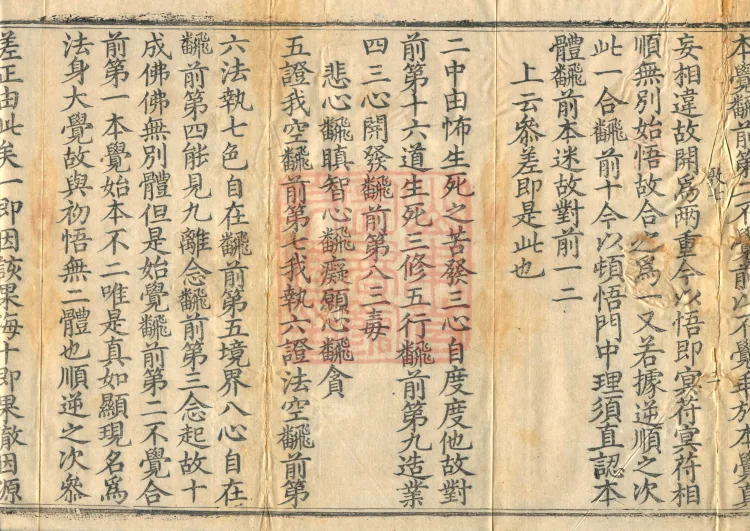 本覺飜前第二不覺前以不覺乖於本覺真
妄相違故開爲兩重今以悟即冥符冥符相
順無別始悟故合之爲一又若據逆順之次
此一合飜前十今以頓悟門中理須直認本
體飜前本迷故對前一二
上云叅差即是此也
二中由怖生死之苦發三心自度度他故對
前第十六道生死三修五行飜前第九造業
四三心開發飜前第八三毒
悲心飜瞋智心飜癡願心飜貪
五證我空飜前第七我執六證法空飜前第
六法執七色自在飜前第五境界八心自在
飜前第四能見九離念飜前第三念起故十
成佛佛無別體但是始覺飜前第二不覺合
前第一本覺始本不二唯是真如顯現名爲
法身大覺故與初悟無二體也順逆之次叅
差正由此矣一即因該果海十即果徹因源